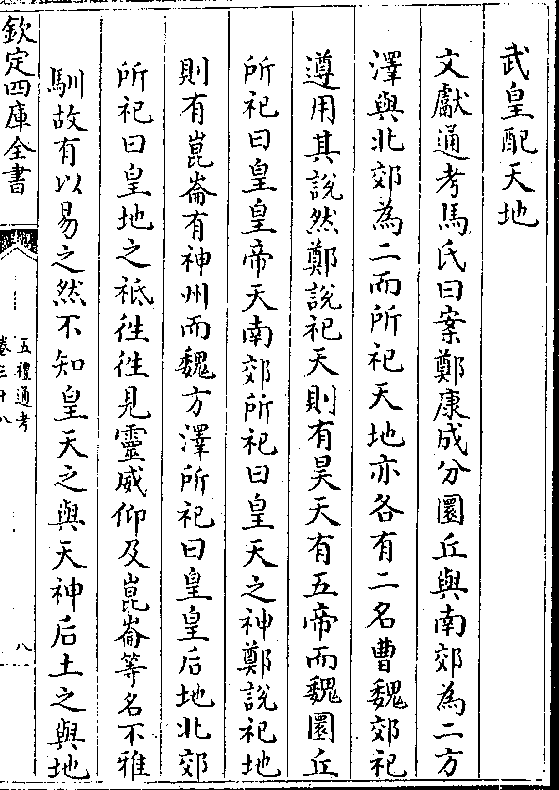 武皇配天地
文獻通考馬氏曰案鄭康成分圜丘與南郊為二方
澤與北郊為二而所祀天地亦各有二名曹魏郊祀
遵用其說然鄭說祀天則有昊天有五帝而魏圜丘
所祀曰皇皇帝天南郊所祀曰皇天之神鄭說祀地
則有崑崙有神州而魏方澤所祀曰皇皇后地北郊
所祀曰皇地之祗徃徃見靈威仰及崑崙等名不雅
馴故有以易之然不知皇天之與天神后土之與地
欽定四庫全書
五禮通考
卷三十八
八